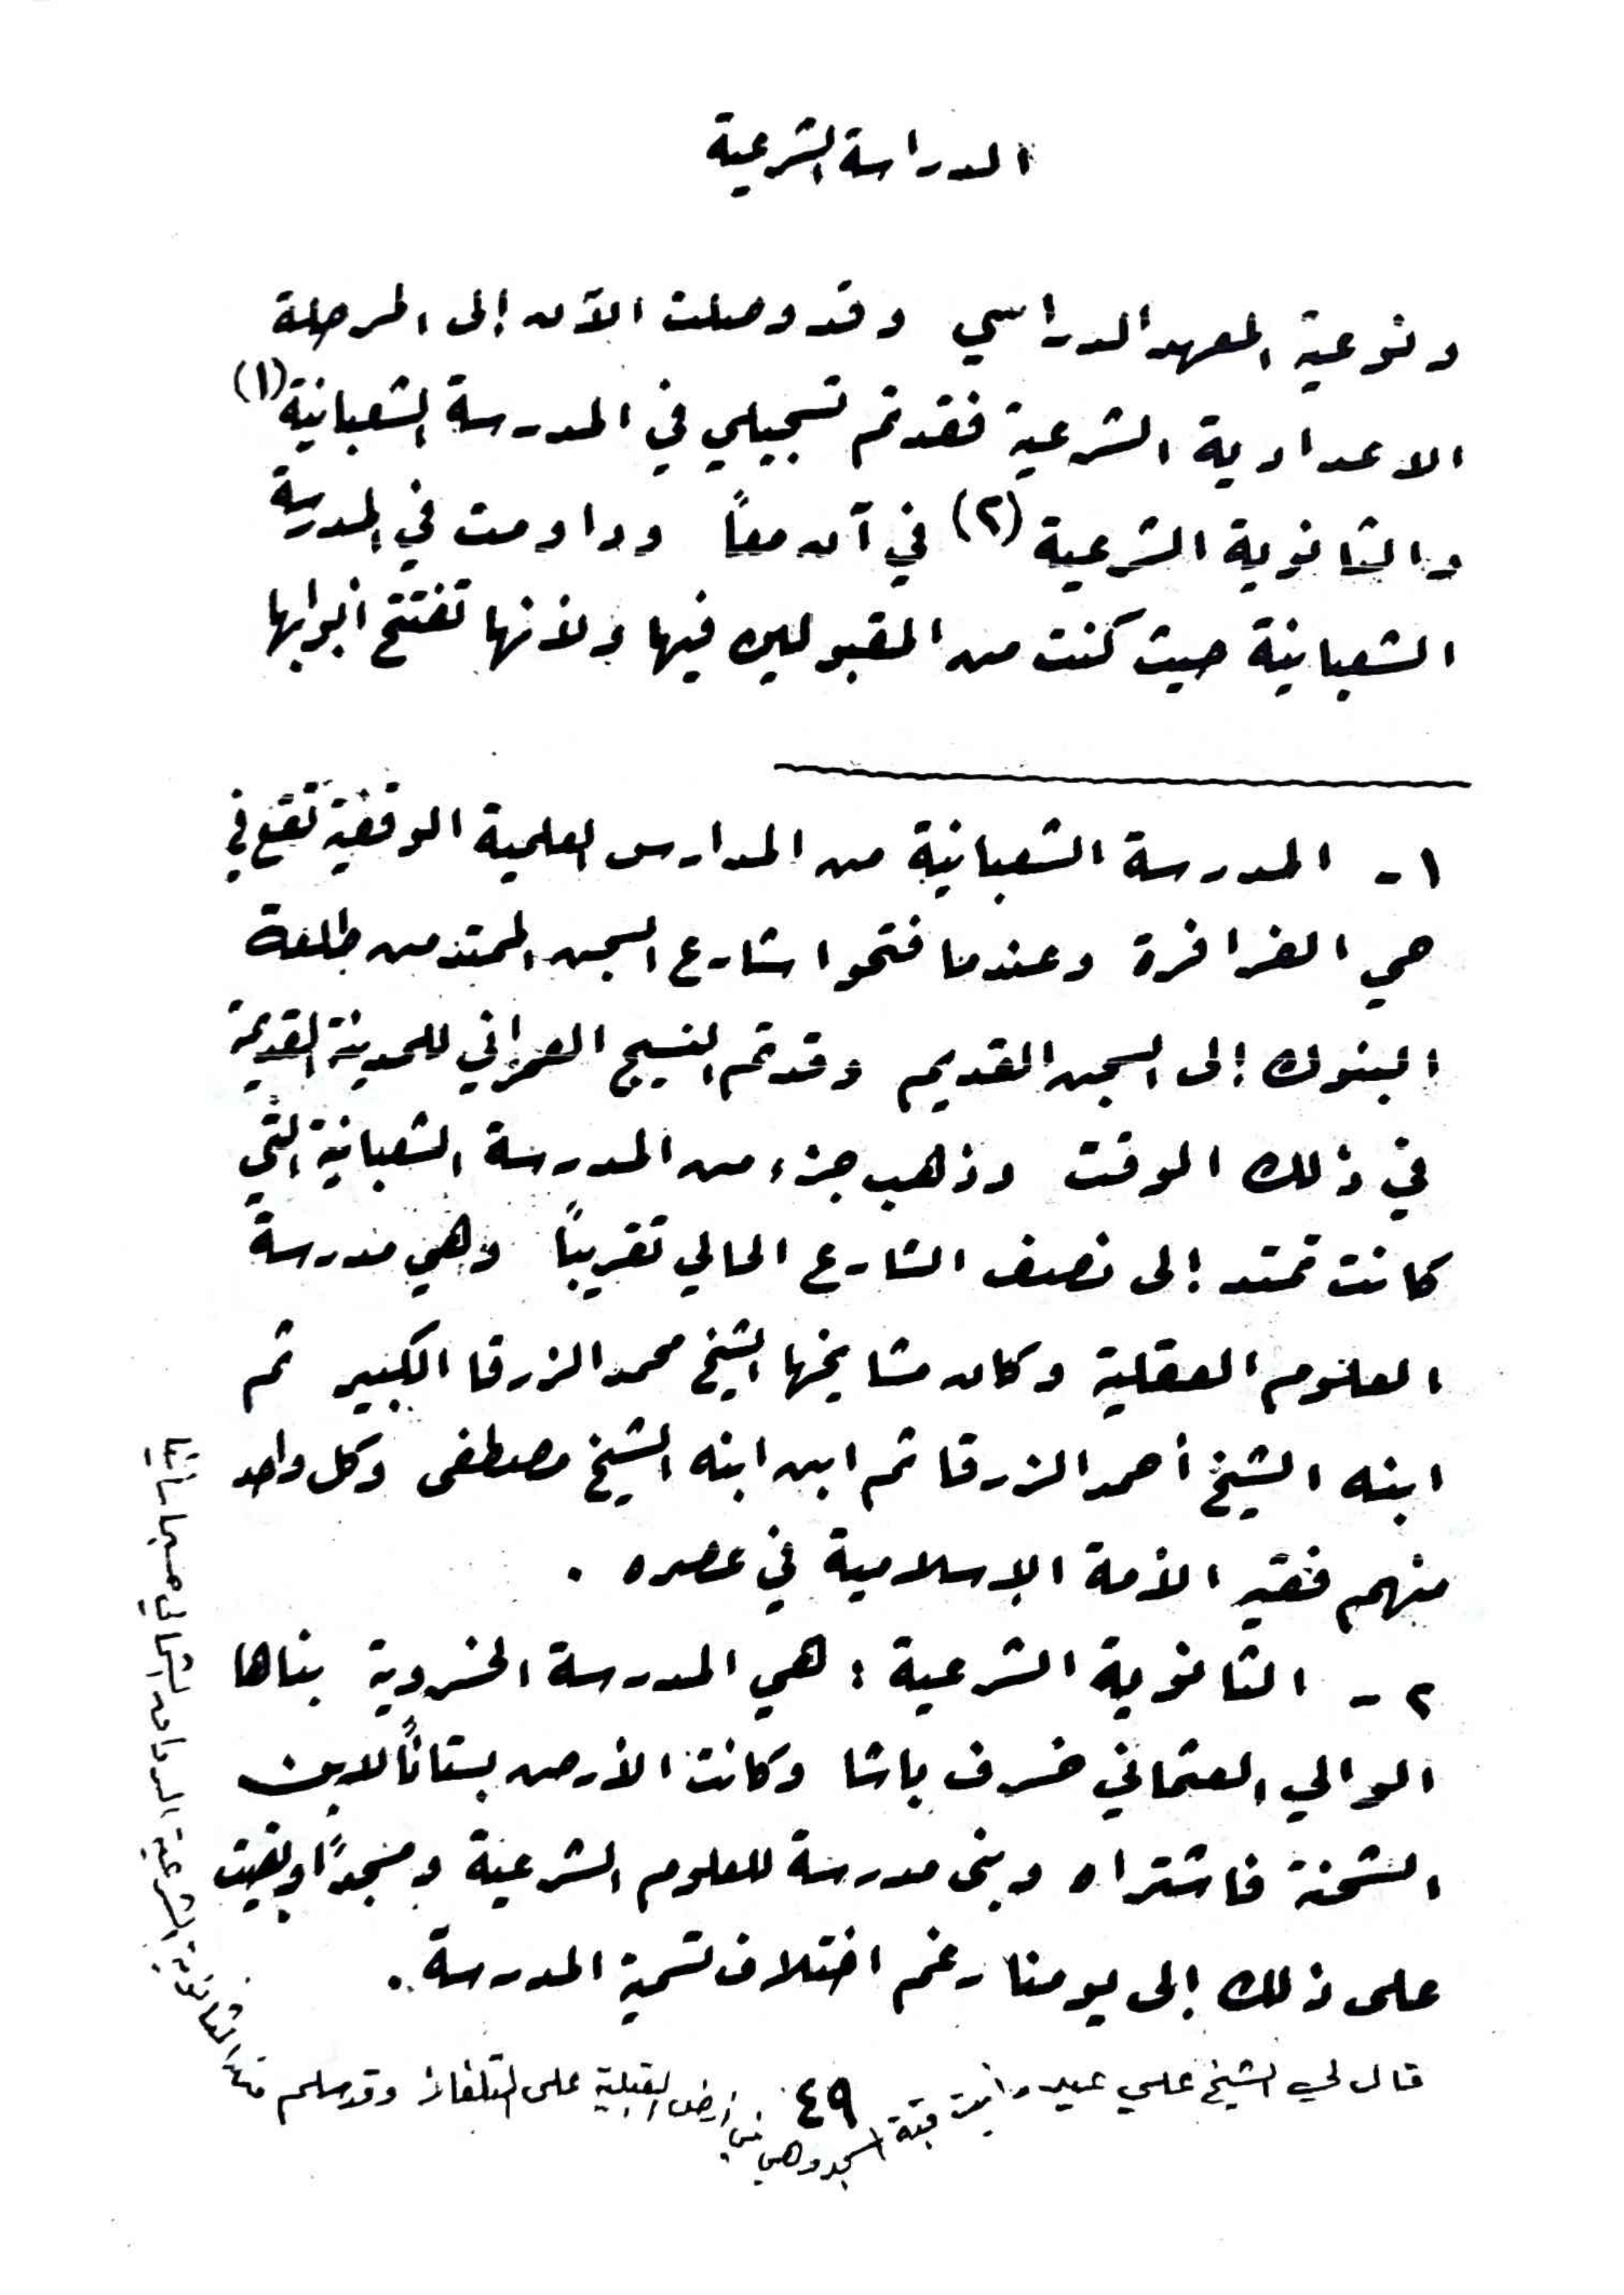 الدراسة الشرعية
ونوعية المعهد الدراسي وقد وصلت الآن إلى المرحلة
الاعدادية الشرعية فقد تم تسجيلي في المدرسة الشعبانية (١)
والثانوية الشرعية (٢) في آن معاً وداومت في المدرسة
الشعبانية حيث كنت من المقبولين فيها ولأنها تفتتح ابوابها
١- المدرسة الشعبانية من المدارس العلمية الوقفية تقع في
حي الفرافرة وعندما فتحوا شارع السجن الممتد من طلعة
البنوك إلى السجن القديم وقد تم النسيج العمراني للمدينة القديمة
في ذلك الوقت وذهب جزء من المدرسة الشعبانية التي
كانت تمتد إلى نصف الشارع الحالي تقريباً وهي مدرسة
العلوم العقلية وكان مشايخها الشيخ محمد الزرقا الكبير ثم
ابنه الشيخ أحمد الزرقا ثم ابن ابنه الشيخ مصطفى وكل واحد
منهم فقيه الأمة الإسلامية في عصره .
٢- الثانوية الشرعية : هي المدرسة الخسروية بناها
الوالي العثماني خسرف باشا وكانت الأرض بستاناً لابن
الشحنة فاشتراه وبنى مدرسة للعلوم الشرعية ومسجداً وبقيت
على ذلك إلى يومنا رغم اختلاف تسمية المدرسة .
قال لي الشيخ علي عبد رأيت قبة المسجد وهي في أرض القبلية على التلفاز وقد سلم
الثانوية الشرعية
٤٩